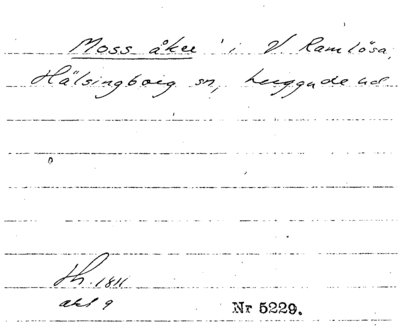 Moss åker i V. Ramlösa,
Hälsingborg sn, Luggude hd
Th. 1811
akt 9
Nr 5229.